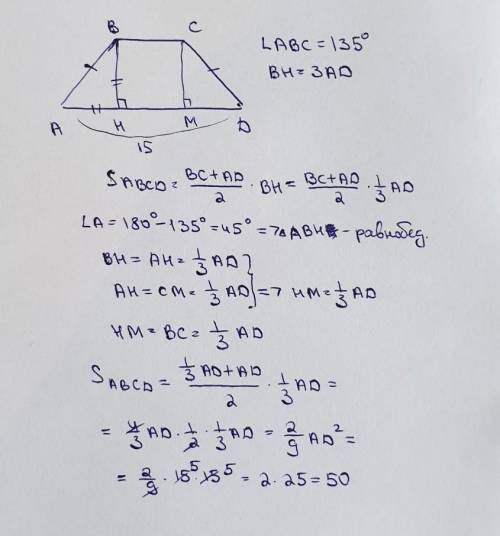 B C
∠ABC = 135°
BH = 3AD
A H M D
15
S ABCD = BC+AD/2 · BH = BC+AD/2 · 1/3 AD
∠A = 180° - 135° = 45° => △ABH - равнобед.
BH = AH = 1/3 AD }
AH = CM = 1/3 AD } => HM = 1/3 AD
HM = BC = 1/3 AD
S ABCD = 1/3 AD + AD/2 · 1/3 AD =
= 4/3 AD · 1/2 · 1/3 AD = 2/9 AD² =
= 2/9 · 15⁵ · 15⁵ = 2 · 25 = 50